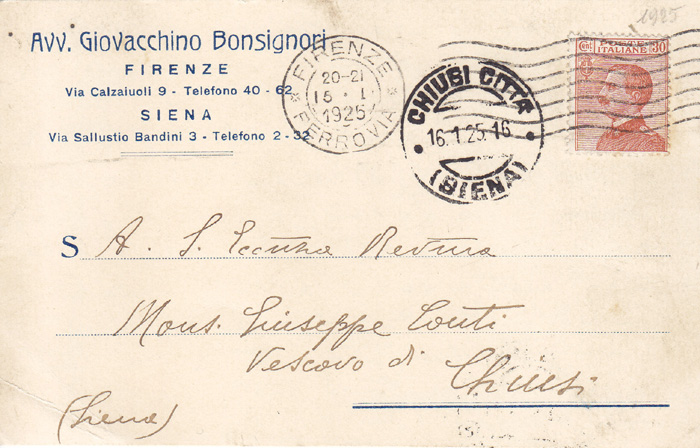 1925
Avv. Giovacchino Bonsignori
FIRENZE
Via Calzaiuoli 9 - Telefono 40 - 62
SIENA
Via Sallustio Bandini 3 - Telefono 2 - 32
FIRENZE
20-21
15 · I.
1925
FERROVIA
CHIUSI CITTÀ
16.1.25.16
(SIENA)
Cent. POSTE 30
ITALIANE
S A. S. Eccnza Revma
Mons. Giuseppe Conti
Vescovo di
Chiusi
(Siena)